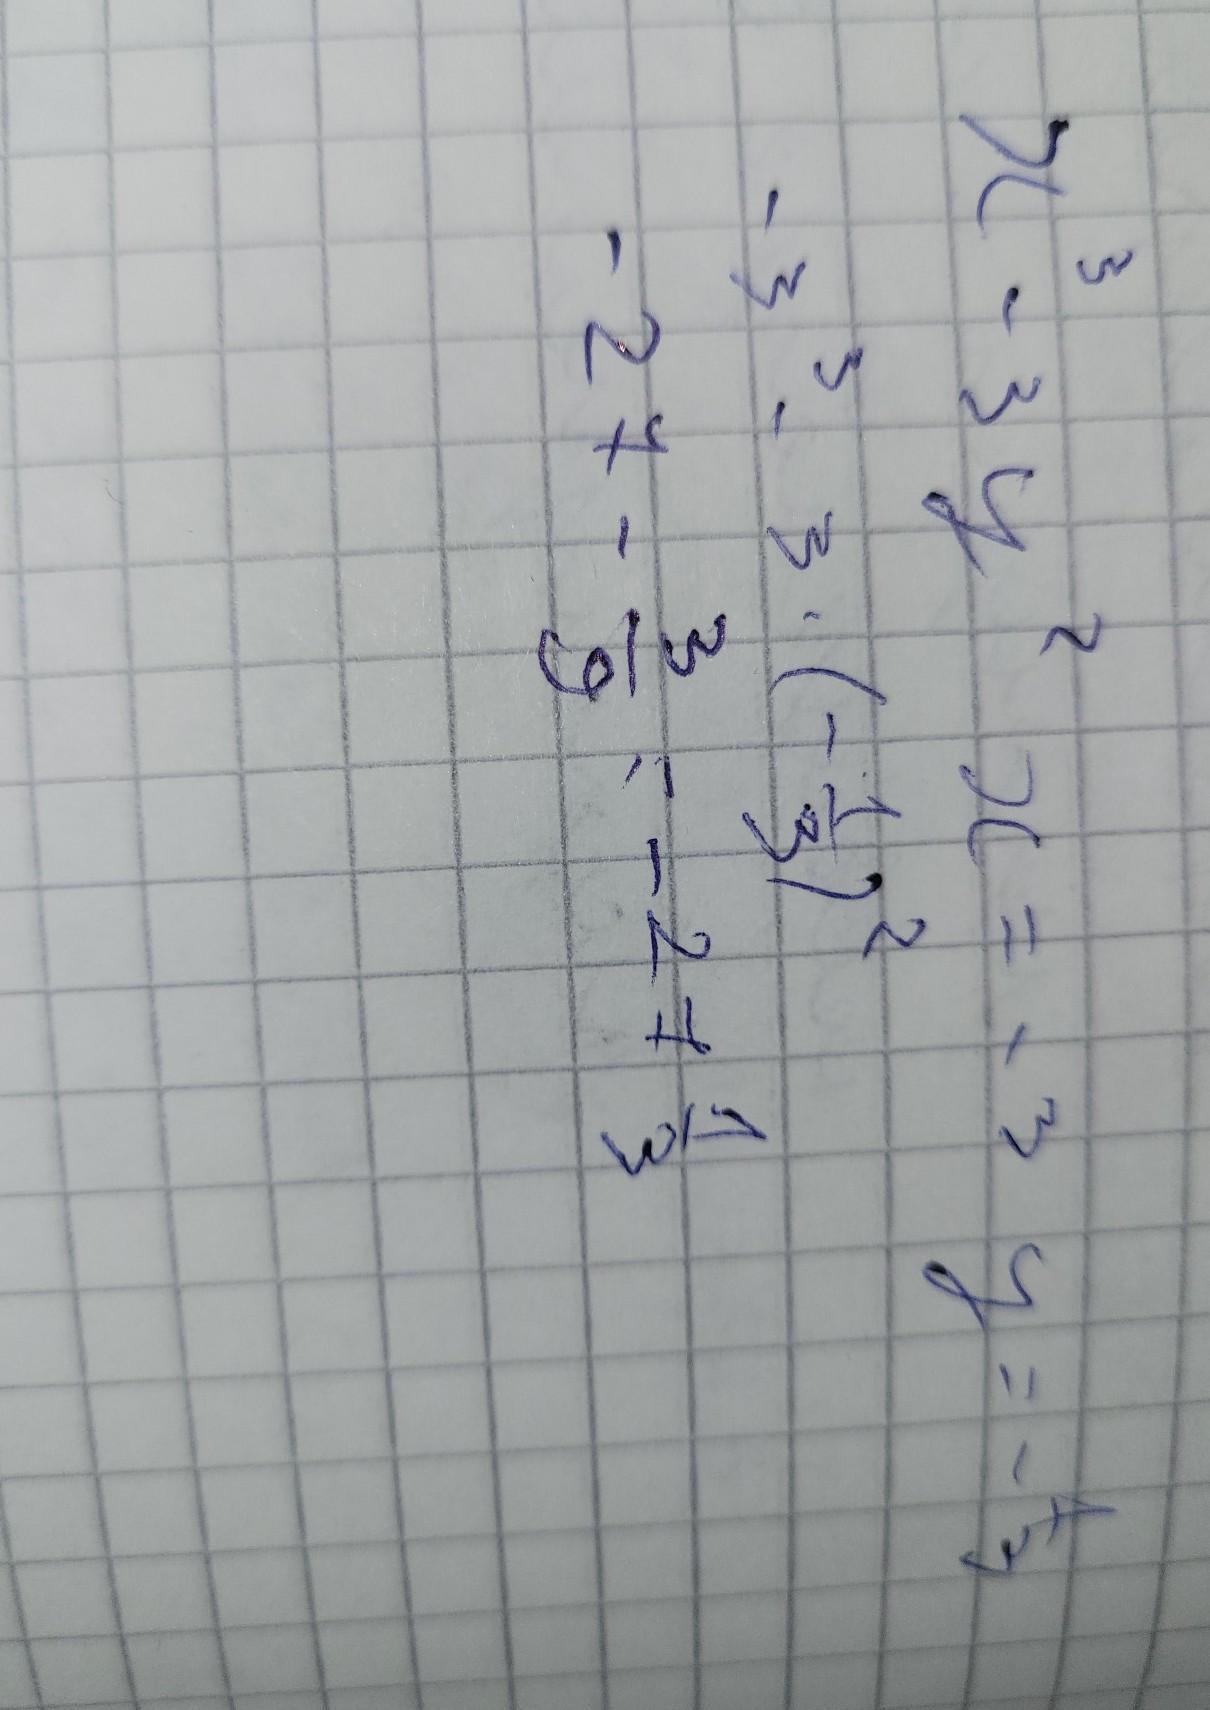 x³ - 3y² x = -3 y = -1/3
-3³ - 3 · (-1/3)²
-27 - 3/9 = -27 1/3